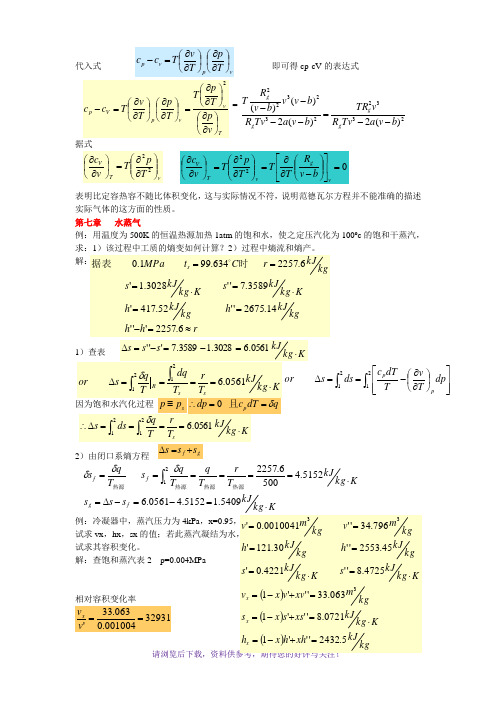 代入式 c_p − c_v = T(∂v/∂T)_p (∂p/∂T)_v 即可得cp-cV的表达式
c_p − c_V = T(∂v/∂T)_p (∂p/∂T)_v = T(∂p/∂T)_v^2 / (∂p/∂v)_T = T R_g^2/(v−b)^2 v^3(v−b)^2 / (R_gTv^3 − 2a(v−b)^2) = TR_g^2v^3 / (R_gTv^3 − 2a(v−b)^2)
据式
(∂c_V/∂v)_T = T(∂²p/∂T²)_v (∂c_V/∂v)_T = T(∂²p/∂T²)_v = T[∂/∂T(R_g/(v−b))]_v = 0
表明比定容热容不随比体积变化,这与实际情况不符,说明范德瓦尔方程并不能准确的描述
实际气体的这方面的性质。
第七章 水蒸气
例:用温度为500K的恒温热源加热1atm的饱和水,使之定压汽化为100ºc的饱和干蒸汽,
求:1)该过程中工质的熵变如何计算?2)过程中熵流和熵产。
解: 据表 0.1MPa t_s = 99.634°C时 r = 2257.6 kJ/kg
s' = 1.3028 kJ/kg·K s'' = 7.3589 kJ/kg·K
h' = 417.52 kJ/kg h'' = 2675.14 kJ/kg
h''−h' = 2257.6 ≈ r
1)查表 Δs = s''−s' = 7.3589 − 1.3028 = 6.0561 kJ/kg·K
or Δs = ∫₁² δq/T|_R = ∫₁² dq/T_s = r/T_s = 6.0561 kJ/kg·K or Δs = ∫₁² ds = ∫₁² [c_p dT/T − (∂v/∂T)_p dp]
因为饱和水汽化过程 p ≡ p_s ∴ dp = 0 且c_p dT = δq
∴ Δs = ∫₁² ds = ∫₁² δq/T = r/T_s = 6.0561 kJ/kg·K
2)由闭口系熵方程 Δs = s_f + s_g
δs_f = δq/T热源 s_f = ∫₁² δq/T热源 = q/T热源 = r/T热源 = 2257.6/500 = 4.5152 kJ/kg·K
s_g = Δs − s_f = 6.0561 − 4.5152 = 1.5409 kJ/kg·K
例:冷凝器中,蒸汽压力为4kPa,x=0.95,
试求vx,hx,sx的值;若此蒸汽凝结为水,
试求其容积变化。
解:查饱和蒸汽表2 p=0.004MPa
v' = 0.0010041 m³/kg v'' = 34.796 m³/kg
h' = 121.30 kJ/kg h'' = 2553.45 kJ/kg
s' = 0.4221 kJ/kg·K s'' = 8.4725 kJ/kg·K
v_x = (1−x)v'+xv'' = 33.063 m³/kg
s_x = (1−x)s'+xs'' = 8.0721 kJ/kg·K
h_x = (1−x)h'+xh'' = 2432.5 kJ/kg
相对容积变化率
v_x/v' = 33.063/0.001004 = 32931
请浏览后下载,资料供参考,期待您的好评与关注!